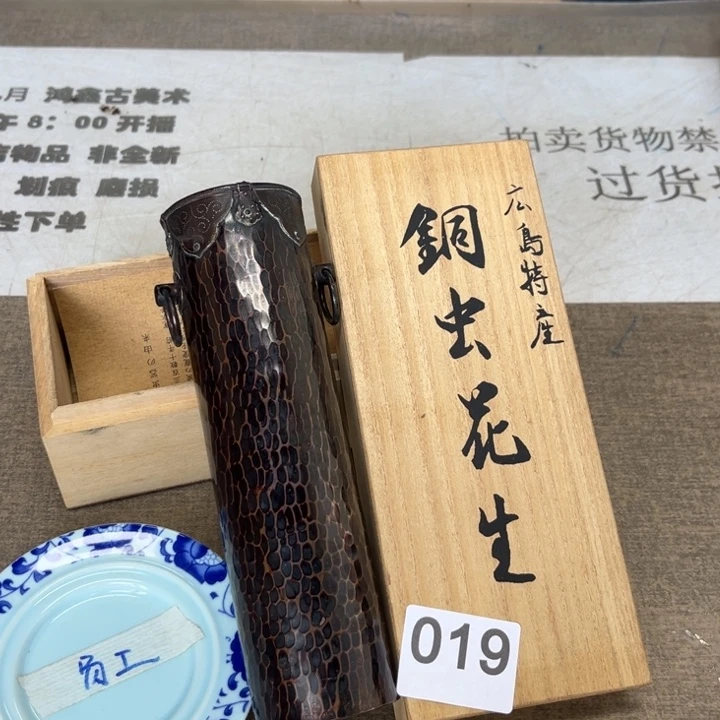 月 鸿鑫古美术
午 8：00 开播
物品 非全新
划痕 磨损
性下单
拍卖货物禁
过货
広島特産
銅虫花生
019
员工